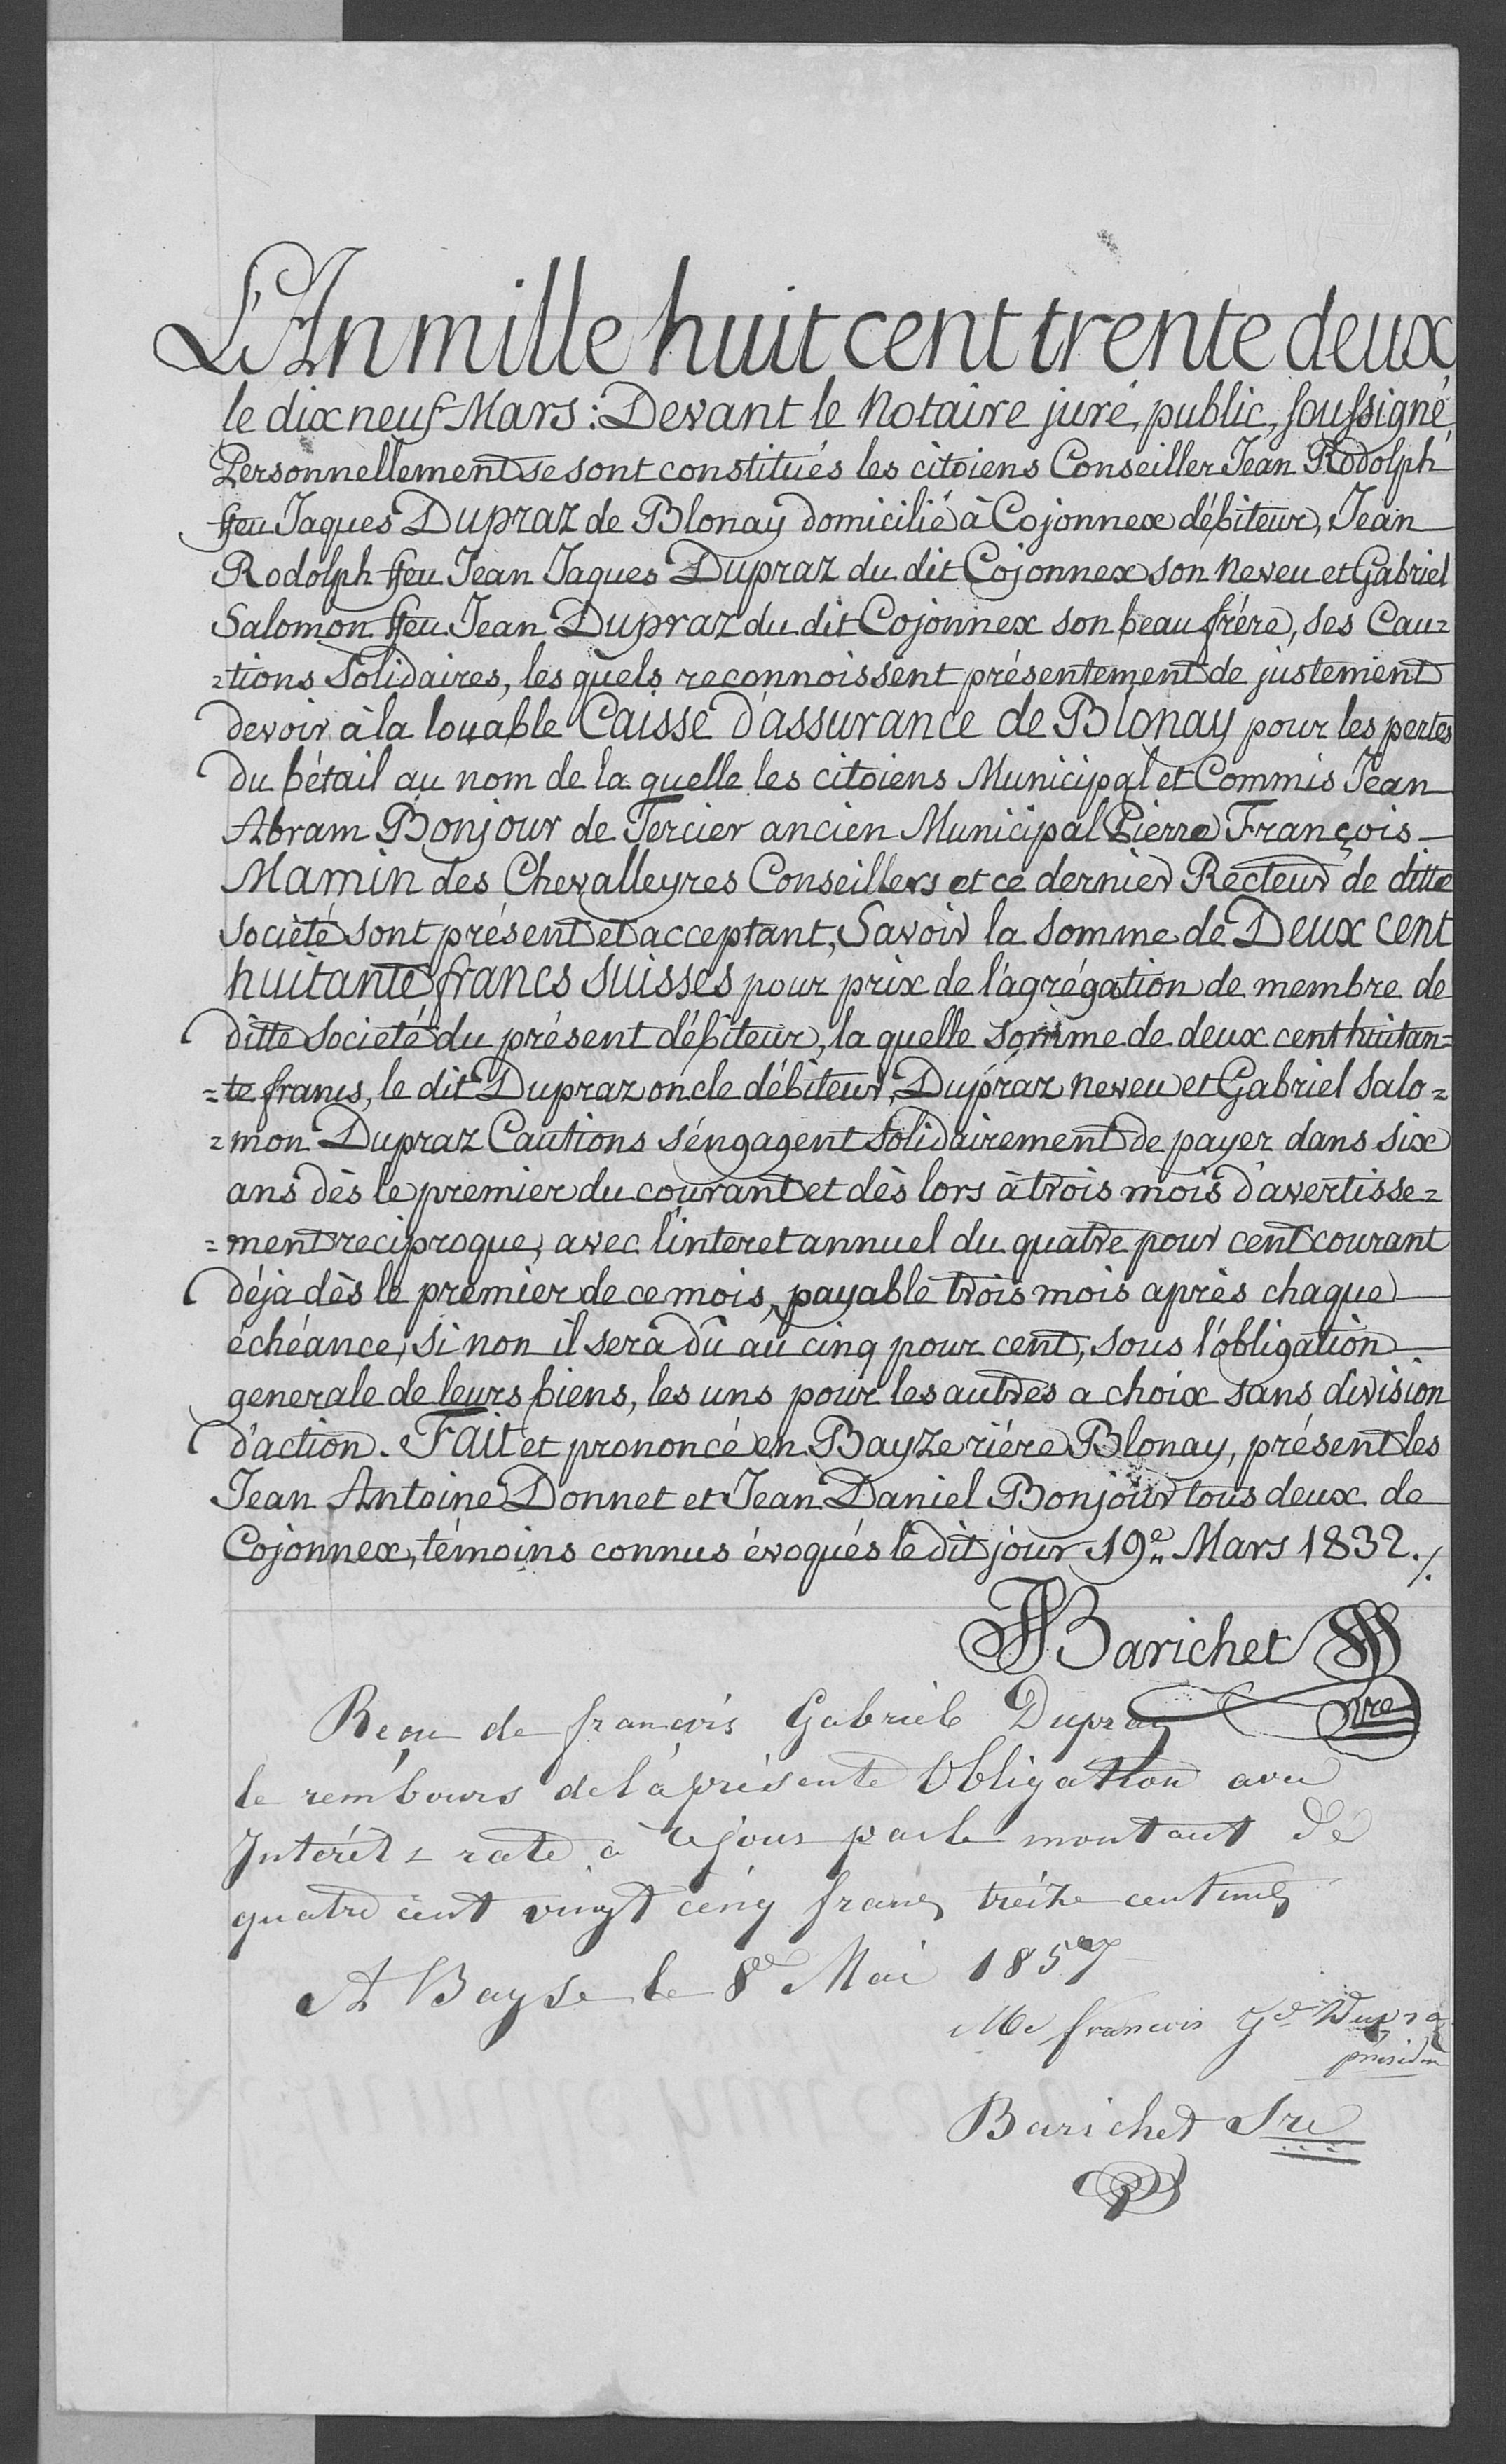 L'An mille huit cent trente deux
le dix neuf Mars: Devant le Notaire juré, public, soussigné,
Personnellement se sont constitués les citoiens Conseiller Jean Rodolph
ffeu Jaques Dupraz de Blonay domicilié à Cojonnex débiteur, Jean
Rodolph ffeu Jean Jaques Dupraz du dit Cojonnex son Neveu et Gabriel
Salomon ffeu Jean Dupraz du dit Cojonnex son beau frére, ses Cau=
=tions Solidaires, les quels reconnoissent présentement de justement
devoir à la louable Caisse d'assurance de Blonay pour les pertes
du bétail au nom de la quelle les citoiens Municipal et Commis Jean
Abram Bonjour de Tercier ancien Municipal Pierre François
Mamin des Chevalleyres Conseillers et ce dernier Recteur de ditte
Societé sont présent et acceptant, Savoir la somme de Deux cent
huitante francs Suisses pour prix de l'agrégation de membre de
ditte Societé du présent débiteur, la quelle somme de deux cent huitan=
=te francs, le dit Dupraz oncle débiteur, Dupraz neveu et Gabriel Salo=
=mon Dupraz Cautions s'éngagent Solidairement de payer dans six
ans dès le premier du courant et dès lors à trois mois d'avertisse=
=ment reciproque, avec l'interet annuel du quatre pour cent courant
déja dès le premier de ce mois, payable trois mois après chaque
échéance, si non il sera dû au cinq pour cent, sous l'obligation
generale de leurs biens, les uns pour les autres a choix sans division
d'action. Fait et prononcé en Bayze riére Blonay, présent les
Jean Antoine Donnet et Jean Daniel Bonjour tous deux de
Cojonnex, témoins connus évoqués le dit jour 19e Mars 1832./.
Barichet
Nre
Reçu de françois Gabriel Dupraz
le rembours de la présente Obligation avec
Intérêt & rate à ce jour par le montant de
quatre cent vingt cinq francs treize centimes
A Bayse le 8e Mai 1857
françois Gd Dupra
présiden
Barichet Sre